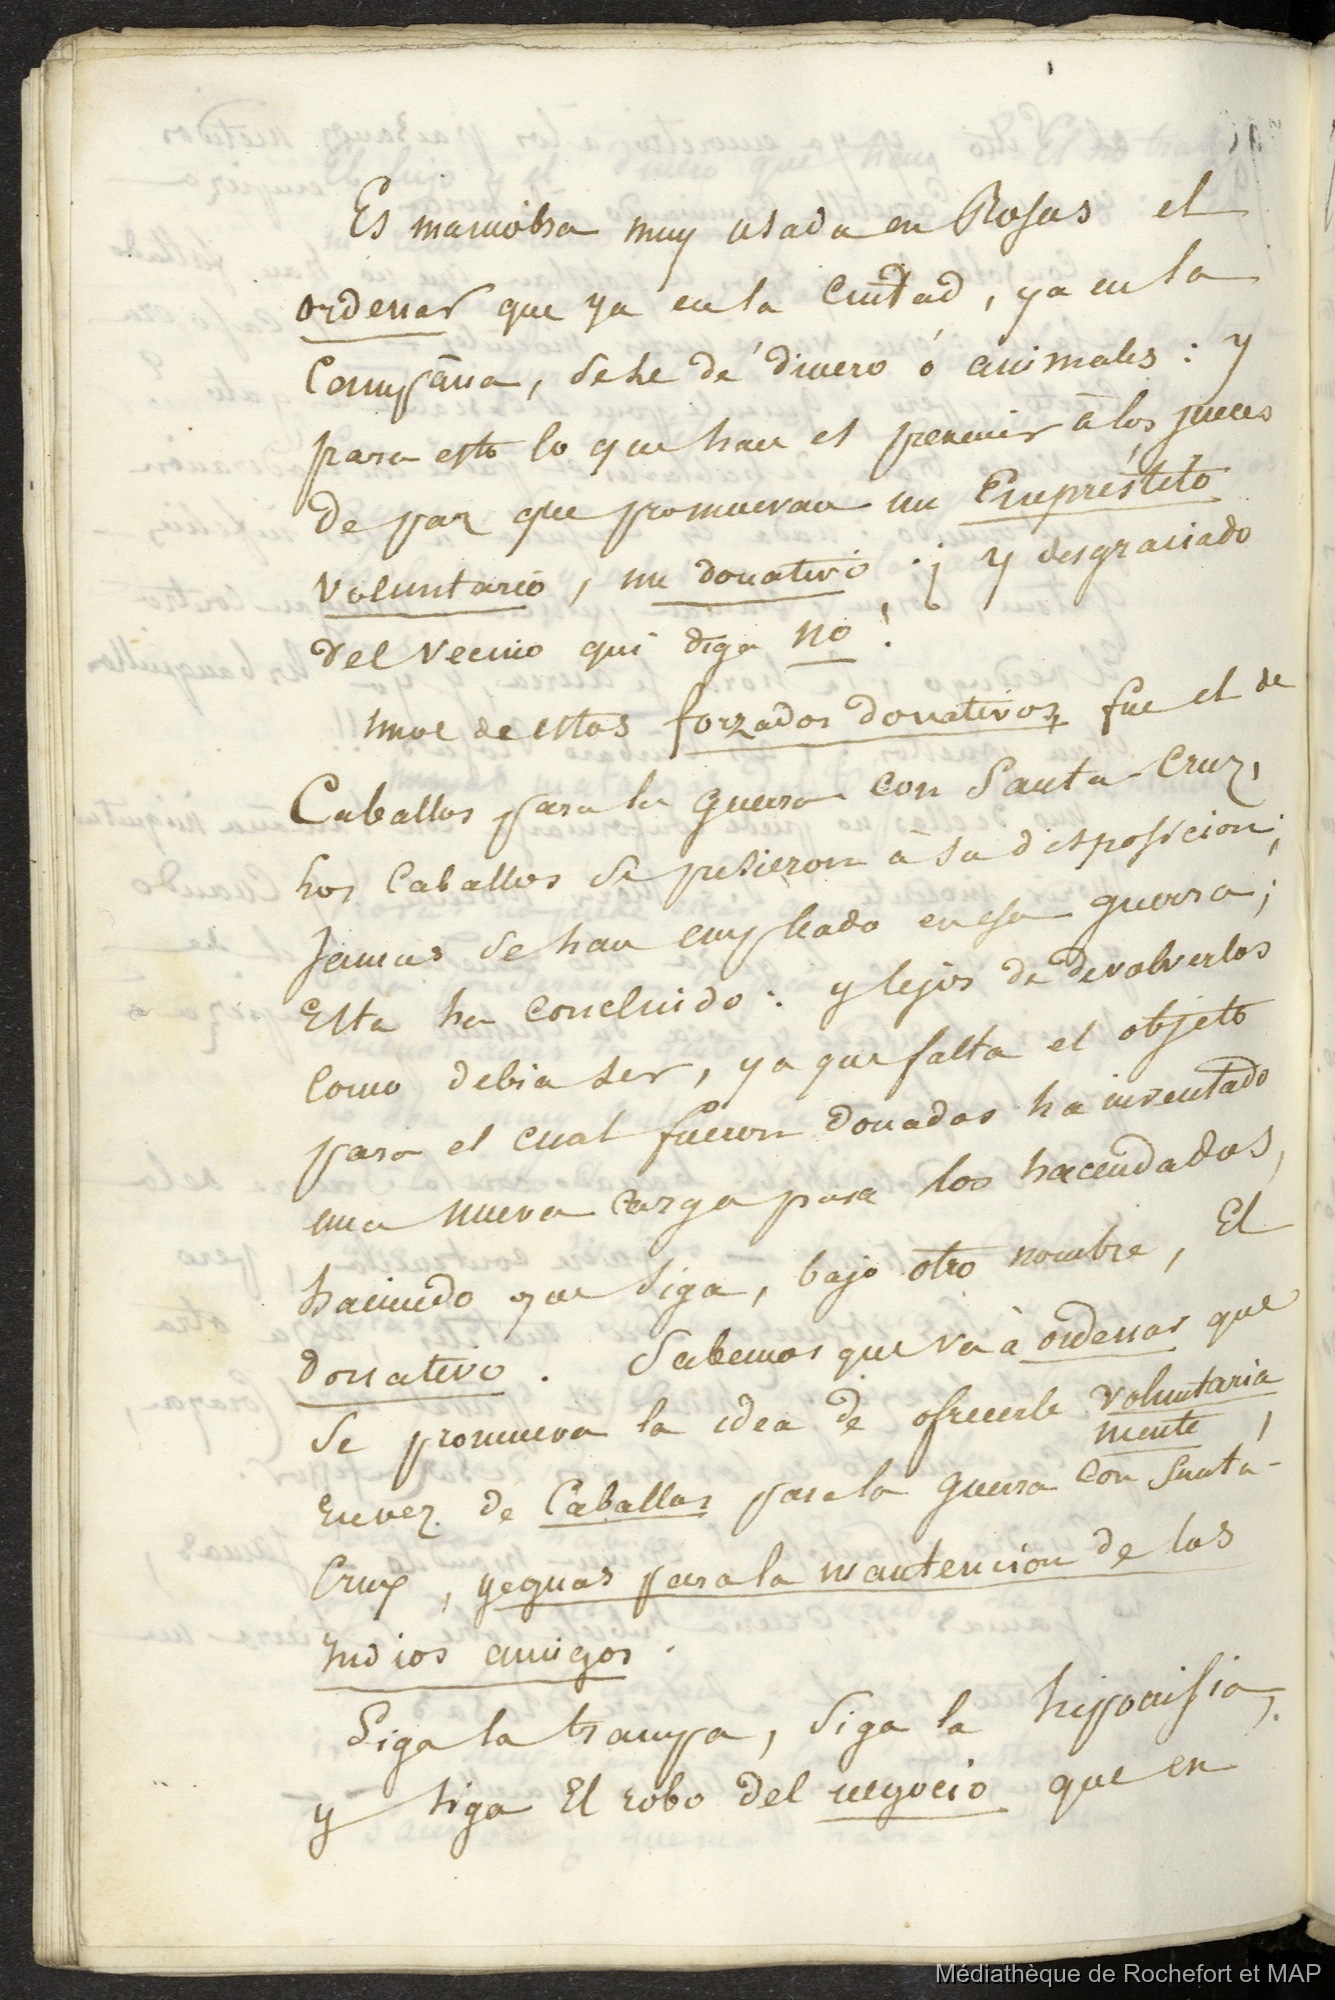 Es maniobra muy usada en Rosas el
ordenar que ya en la Ciudad, ya en la
Campaña, se le dé dinero ó animales: y
para esto lo que hace el prevenir à los jueces
de paz que promuevan un Empréstito
voluntario, un donativo: ¡ y desgraciado
del vecino qui diga no!
uno de estos forzados donativos fue el de
Caballos para la guerra con Santa-Cruz,
los Caballos se pusieron à su disposicion;
Jamas se han empleado en esa guerra;
Esta ha concluido: y lejos de devolverlos
como debia ser, ya que falta el objeto
para el cual fueron donados ha inventado
una nueva carga para los hacendados,
haciendo que siga, bajo otro nombre, El
donativo. Sabemos que va à ordenar que
se promueva la idea de ofrecerle voluntaria
mente,
en vez de Caballos para la guerra con Santa-
Cruz, yeguas para la mantencion de los
Indios amigos.
Siga la trampa, siga la hipocrisia,
y siga El robo del negocio que en
Médiathèque de Rochefort et MAP